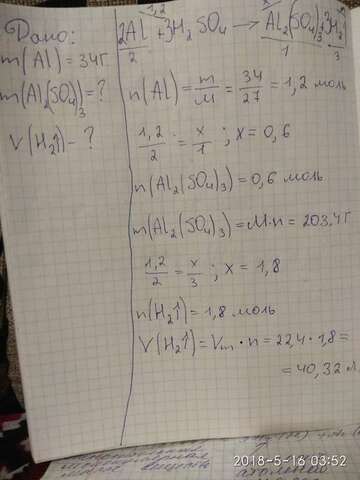 Дано:
m(Al)=34г
m(Al₂(SO₄)₃=?
V(H₂↑)-?
1,2 x x
2Al+3H₂SO₄→Al₂(SO₄)₃+3H₂↑
2 1 3
n(Al)=m/M=34/27=1,2 моль
1,2/2=x/1; x=0,6
n(Al₂(SO₄)₃)=0,6 моль
m(Al₂(SO₄)₃)=M·n=203,4г
1,2/2=x/3; x=1,8
n(H₂↑)=1,8 моль
V(H₂↑)=Vm·n=22,4·1,8=
=40,32 л.
2018-5-16 03:52